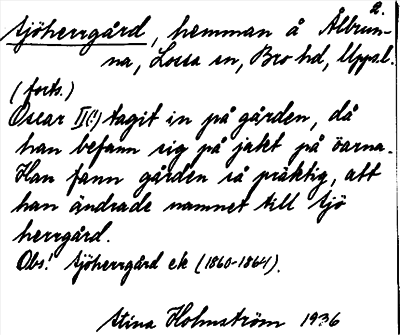 2.
Sjöherrgård, hemman å Ålbrun-
na, Lossa sn, Bro hd, Uppsl.
(forts.)
Oscar II(!) tagit in på gården, då
han befann sig på jakt på öarna.
Han fann gården så präktig, att
han ändrade namnet till Sjö
herrgård.
Obs! Sjöherrgård ek (1860-1864).
Stina Holmström 1936